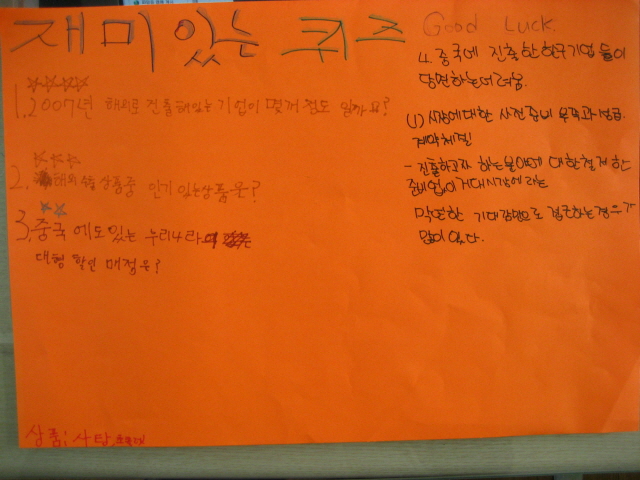 재미있는 퀴즈
Good Luck.
1. 2007년 해외로 진출해있는 기업이 몇개 정도 일까요?
2. 해외 수출 상품중 인기 있는상품은?
3. 중국에도있는 우리나라
대형 할인 매점은?
4. 중국에 진출한한국기업들이
당면하는어려움.
(1) 시장에대한 사전준비 부족과성급.
계약체결
- 진출하고자 하는분야에 대한철저한
준비없이 거대시장에라는
막연한 기대감만으로 접근하는경우가
많이있다.
상품: 사탕,